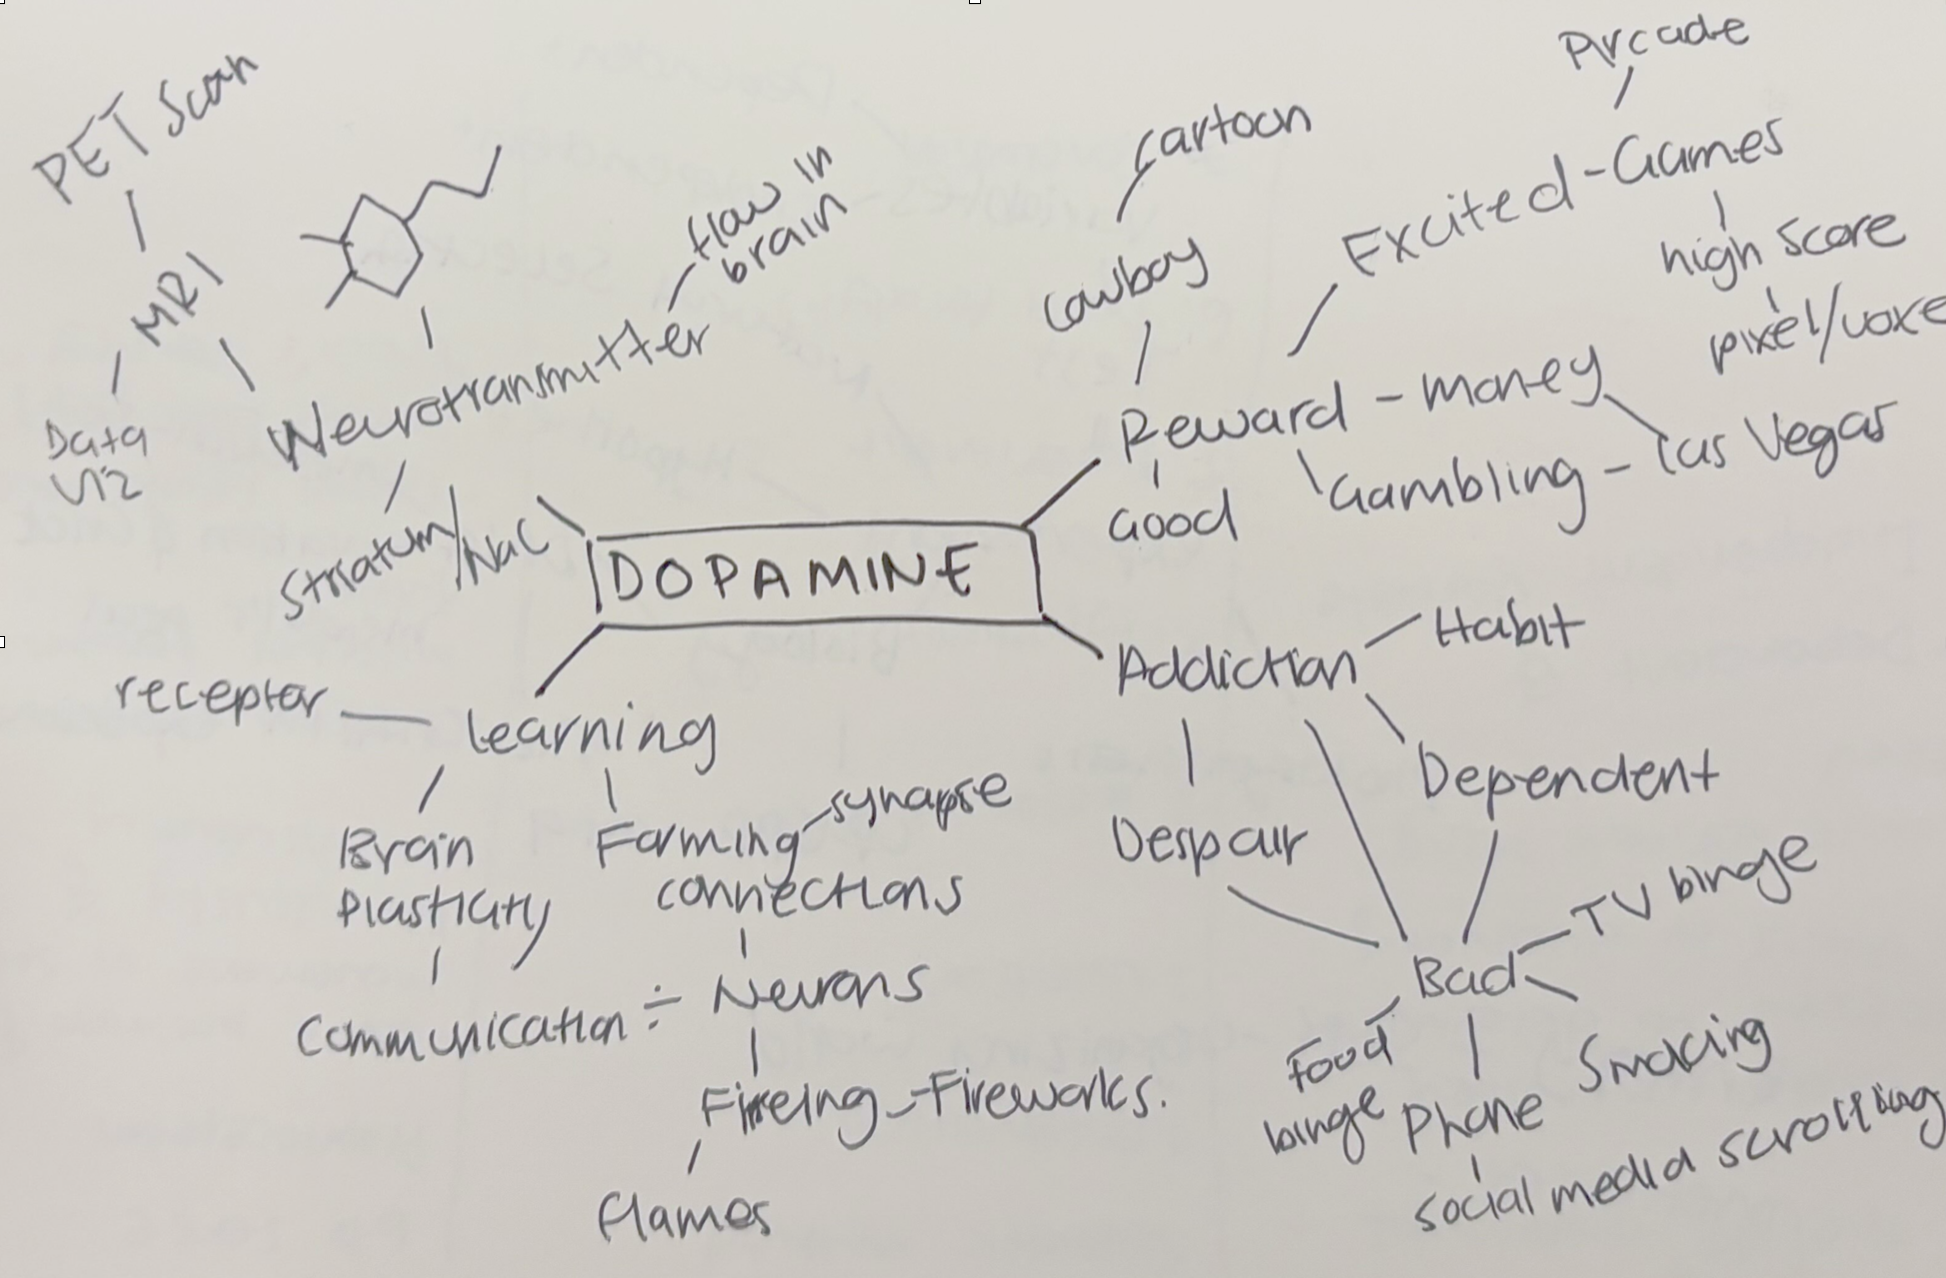 PET Scan
MRI
Data
Viz
flow in
brain
Neurotransmitter
Striatum/NaC
cartoon
cowboy
Arcade
Excited - Games
high score
pixel/voxe
Reward - money
Good
Gambling - Las Vegas
DOPAMINE
receptor
Learning
Brain
Plasticity
Forming
connections
synapse
Communication
Neurons
Fireing - Fireworks.
flames
Addiction
Habit
Dependent
Despair
Bad
TV binge
Smoking
Food
binge
Phone
social media scrolling